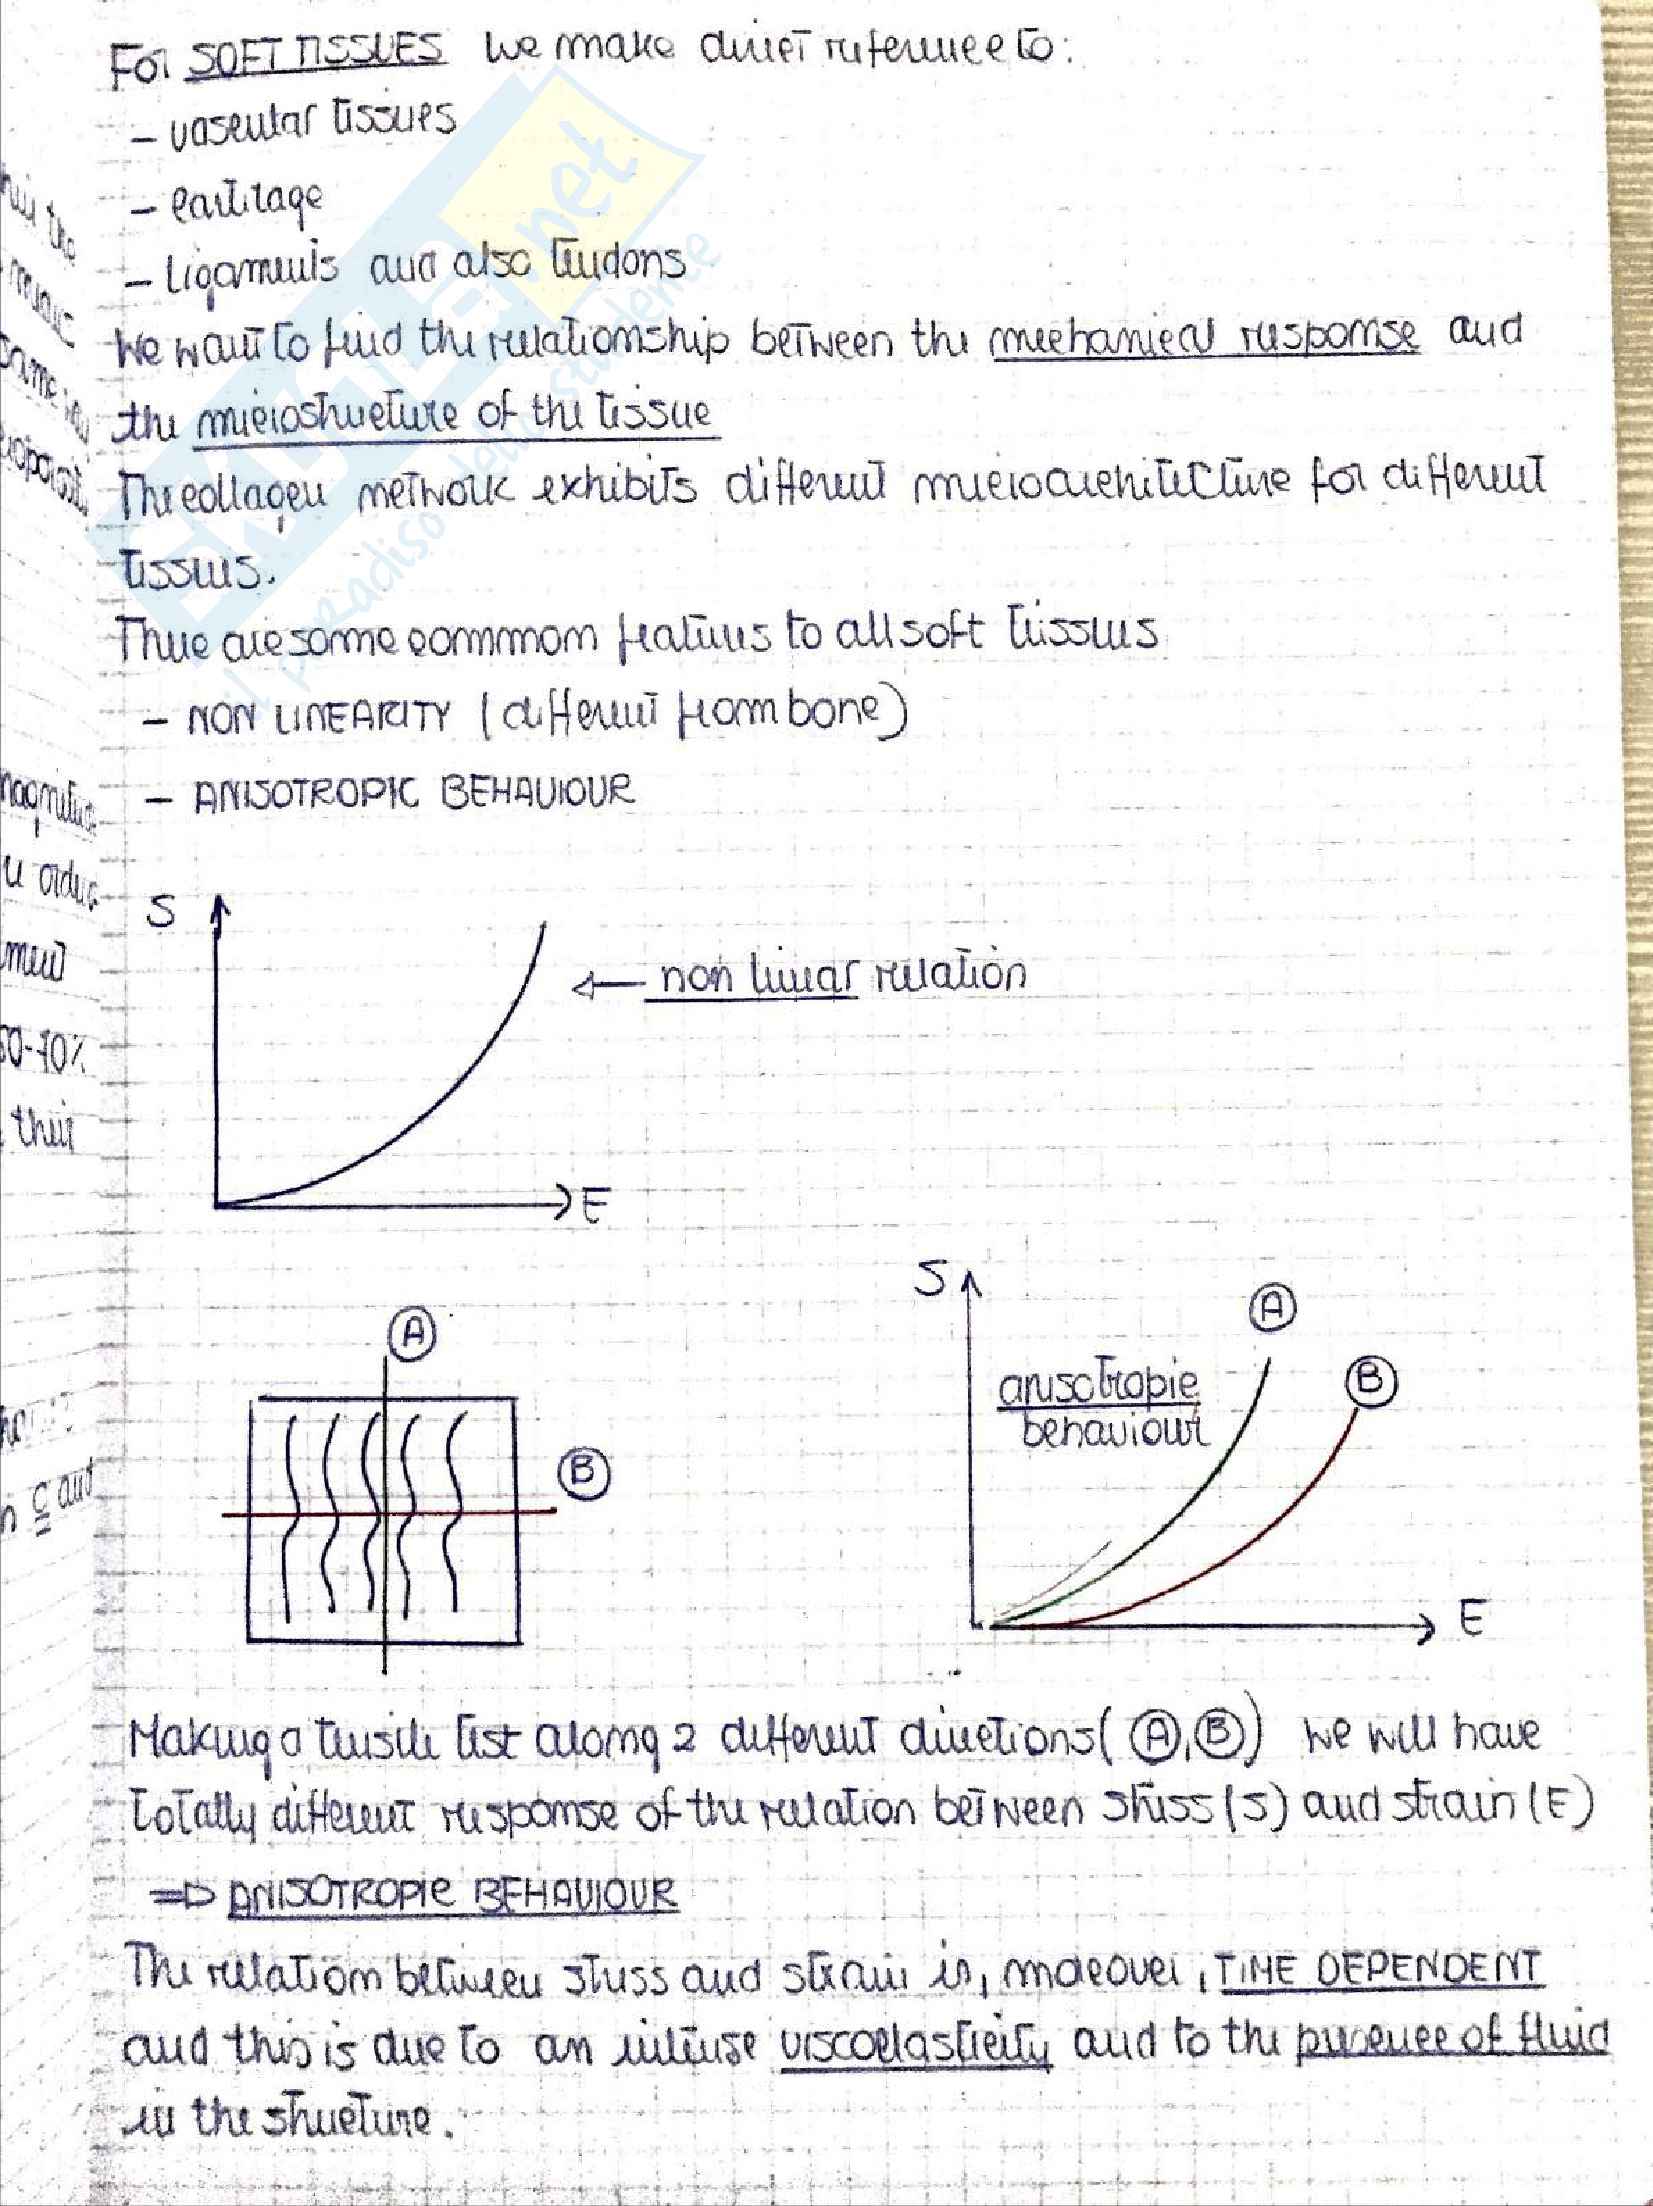 For SOFT TISSUES we make direct reference to:
- vascular tissues
- cartilage
- ligaments and also tendons
We want to find the relationship between the mechanical response and
the microstructure of the tissue
The collagen network exhibits different microarchitecture for different
tissues.
There are some common features to all soft tissues
- NON LINEARITY (different from bone)
- ANISOTROPIC BEHAVIOUR
S
← non linear relation
E
S
A
A
anisotropic
behaviour
B
B
E
Making a tensile test along 2 different directions (A, B) we will have
totally different response of the relation between stress (S) and strain (E)
⇒ ANISOTROPIC BEHAVIOUR
The relation between stress and strain is, moreover, TIME DEPENDENT
and this is due to an intense viscoelasticity and to the presence of fluid
in the structure.
the
magnitude
order
ment
50-70%
their
and
SKUOLA.net
il paradiso dello studente